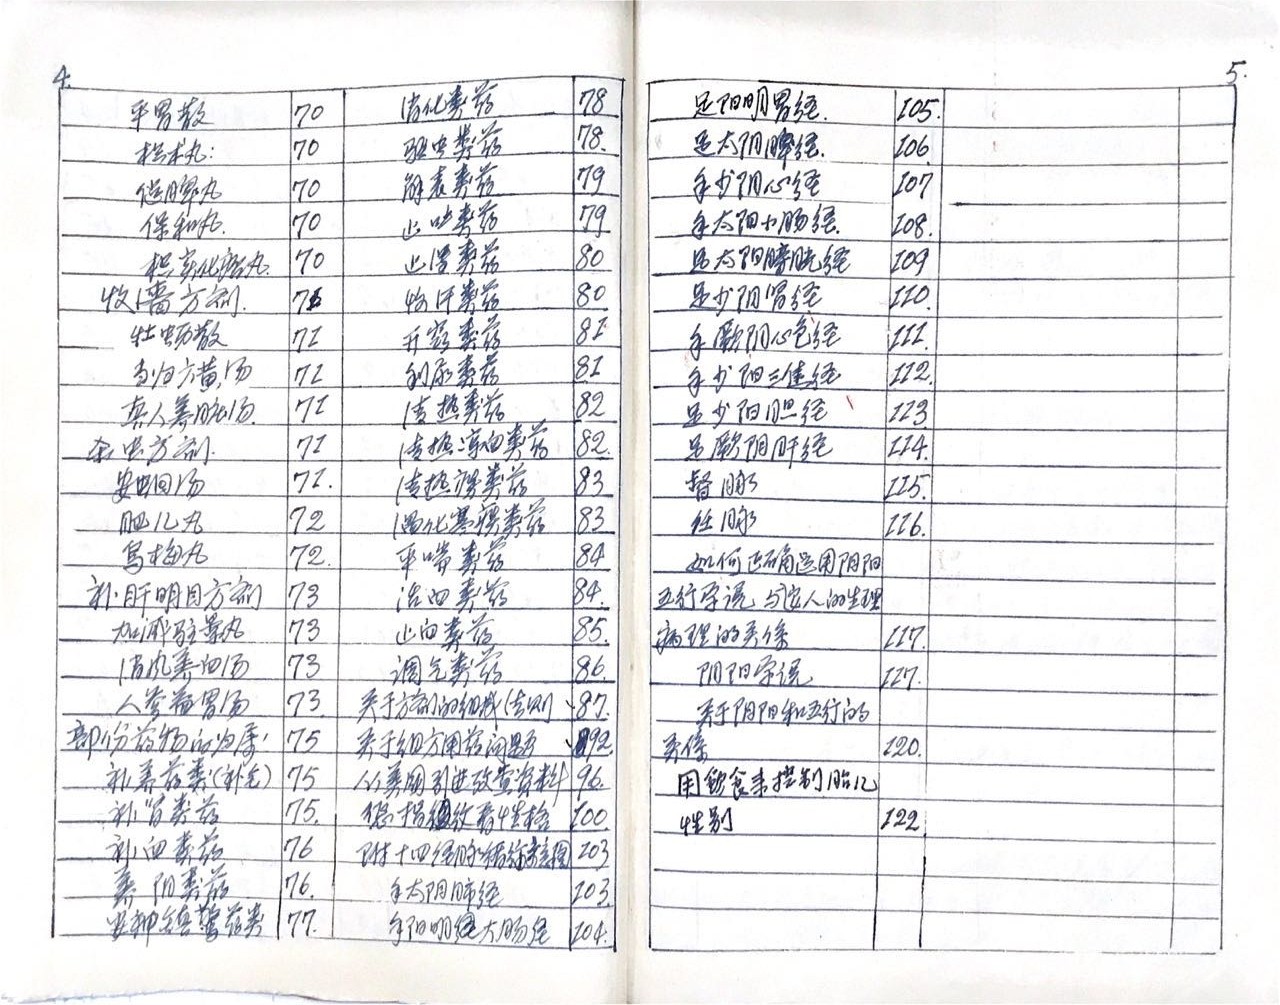 4.
平胃散 70
枳术丸: 70
健脾丸 70
保和丸. 70
枳实化痞丸. 70
收涩方剂. 71
牡蛎散 71
当归六黄汤 71
真人养脏汤. 71
杀虫方剂. 71
安蛔汤 71.
肥儿丸 72
乌梅丸 72.
补肝明目方剂 73
加减驻景丸 73
消风养血汤 73
人参益胃汤 73.
部份药物的归类: 75
补养药类(补气) 75
补肾类药 75.
补血类药 76
养阴类药 76.
安神镇惊药类 77.
消化类药 78
驱虫类药 78.
解表类药 79
止吐类药 79
止涩类药 80
敛汗类药 80
开窍类药 81
利尿类药 81
清热类药 82
清热凉血类药 82.
清热 类药 83
温化寒痰类药 83
平喘类药 84
活血类药 84.
止血类药 85.
调气类药 86.
关于方剂的组成法则 87.
关于组方用药问题 92
从美国引进 资料 96.
性格 100.
附十四经脉 103
手太阴肺经 103.
手阳明经大肠经 104.
5.
足阳明胃经. 105.
足太阴脾经. 106
手少阴心经 107
手太阳小肠经. 108.
足太阳膀胱经 109
足少阴肾经 110.
手厥阴心包经 111.
手少阳三焦经 112.
足少阳胆经 113
足厥阴肝经 114.
督脉 115.
任脉 116.
如何正确运用阴阳
五行学说与 人的生理
病理的关係 117.
阴阳学说 117.
关于阴阳和五行的
关係 120.
用飲食来控制胎儿
性别 122.